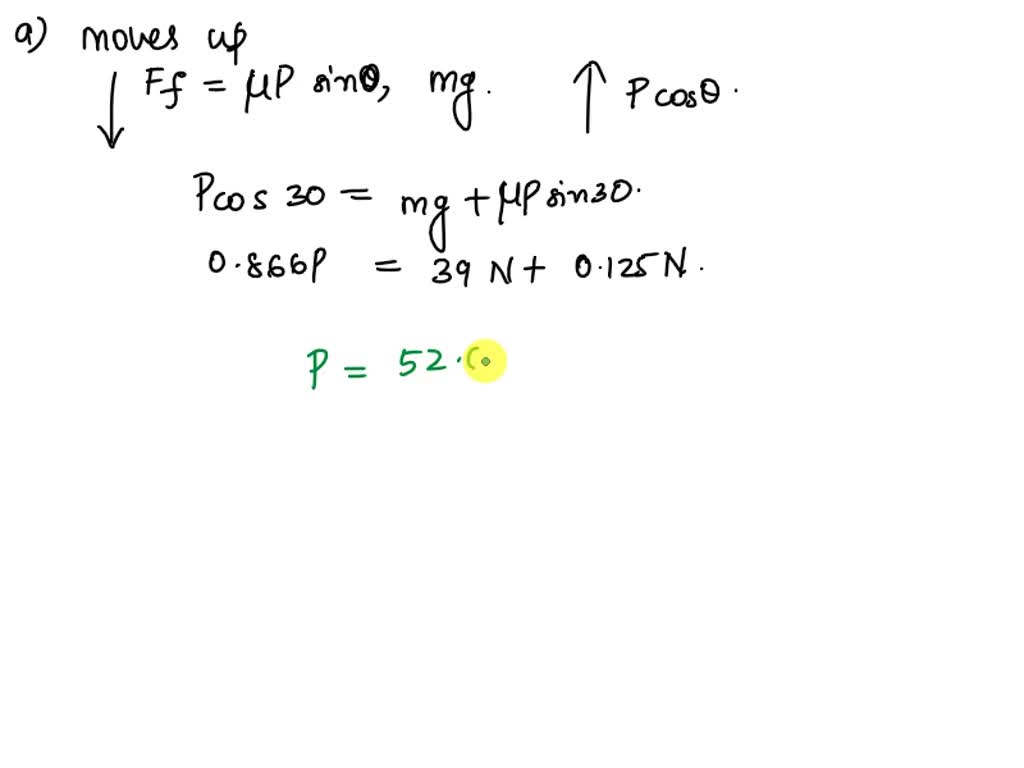 a) moves up
↓ Ff = μP sinθ, mg. ↑ P cosθ.
P cos 30 = mg + μP sin30.
0.866P = 39 N + 0.125 N.
P = 52.